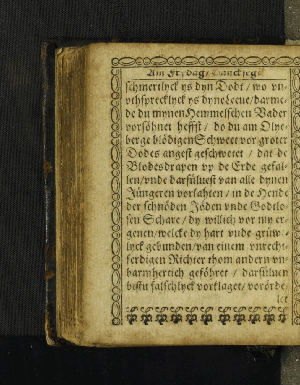 Am Frydag/ Danckseg
schmertlyck ys dyn Dodt / wo vn-
vthsprecklyck ys dyne Leeue / darme-
de du mynen Hemmelschen Vader
vorsöhnet heffst / do du am Olye-
berge blödigen Schweet vor groter
Dodes angest geschwetet / dat de
Blodesdrapen vp de Erde gefal-
len / vnde darsüluest van alle dynen
Jüngeren vorlathen / in de Hende
der schnöden Jöden vnde Godtlo-
sen Schare / dy willich vor my er-
geuen / welcke dy hart vnde grüw-
lyck gebunden / van einem vnrecht-
ferdigen Richter thom andern vn-
barmhertich geföhret / darsüluen
bistu falschlyck vorklaget / vorörde-
let